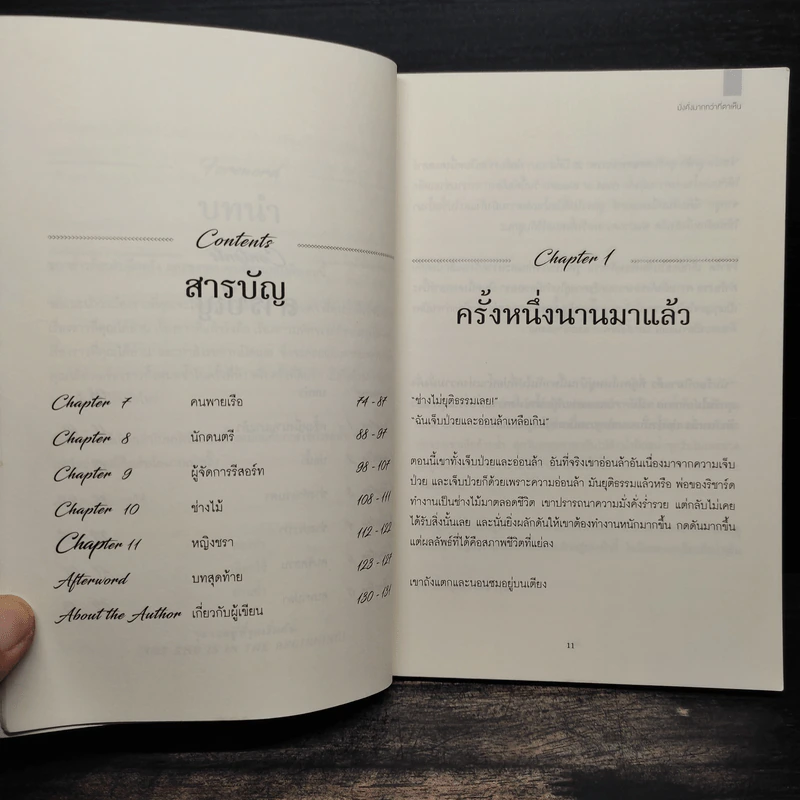 Contents
สารบัญ
Chapter 7 คนพายเรือ 74 - 87
Chapter 8 นักดนตรี 88 - 97
Chapter 9 ผู้จัดการรีสอร์ท 98 - 107
Chapter 10 ช่างไม้ 108 - 111
Chapter 11 หญิงชรา 112 - 122
Afterword บทสุดท้าย 123 - 129
About the Author เกี่ยวกับผู้เขียน 130 - 131
มั่งคั่งมากกว่าที่ตาเห็น
Chapter 1
ครั้งหนึ่งนานมาแล้ว
"ช่างไม่ยุติธรรมเลย!"
"ฉันเจ็บป่วยและอ่อนล้าเหลือเกิน"
ตอนนี้เขาทั้งเจ็บป่วยและอ่อนล้า อันที่จริงเขาอ่อนล้าอันเนื่องมาจากความเจ็บ
ป่วย และเจ็บป่วยก็ด้วยเพราะความอ่อนล้า มันยุติธรรมแล้วหรือ พ่อของริชาร์ด
ทำงานเป็นช่างไม้มาตลอดชีวิต เขาปรารถนาความมั่งคั่งร่ำรวย แต่กลับไม่เคย
ได้รับสิ่งนั้นเลย และนั่นยิ่งผลักดันให้เขาต้องทำงานหนักมากขึ้น กดดันมากขึ้น
แต่ผลลัพธ์ที่ได้คือสภาพชีวิตที่แย่ลง
เขาถังแตกและนอนซมอยู่บนเตียง
11